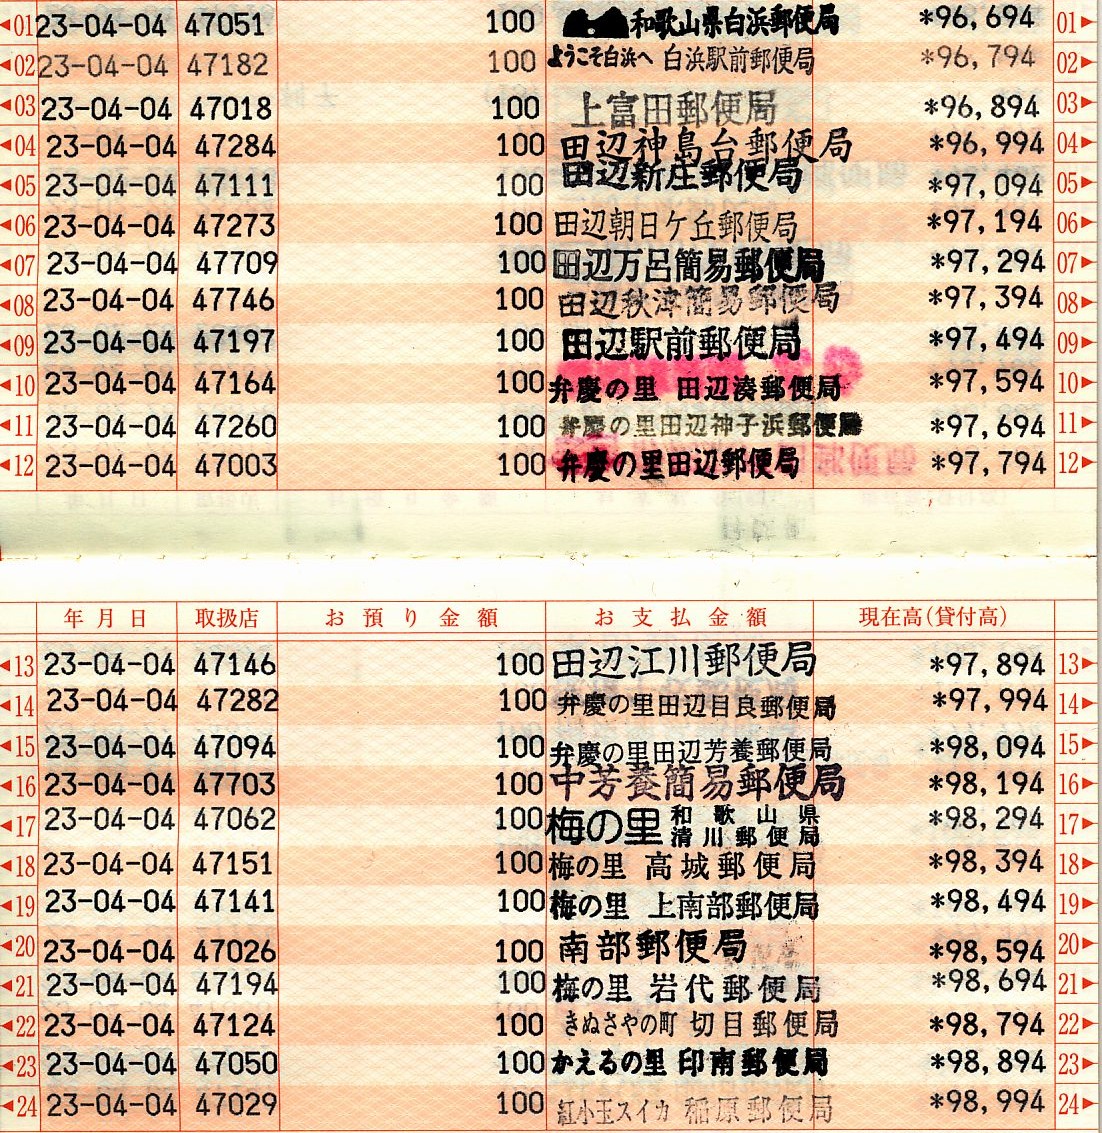 ◄01 23-04-04 47051 100 和歌山県白浜郵便局 *96,694 01►
◄02 23-04-04 47182 100 ようこそ白浜へ 白浜駅前郵便局 *96,794 02►
◄03 23-04-04 47018 100 上富田郵便局 *96,894 03►
◄04 23-04-04 47284 100 田辺神島台郵便局 *96,994 04►
◄05 23-04-04 47111 100 田辺新庄郵便局 *97,094 05►
◄06 23-04-04 47273 100 田辺朝日ケ丘郵便局 *97,194 06►
◄07 23-04-04 47709 100 田辺万呂簡易郵便局 *97,294 07►
◄08 23-04-04 47746 100 田辺秋津簡易郵便局 *97,394 08►
◄09 23-04-04 47197 100 田辺駅前郵便局 *97,494 09►
◄10 23-04-04 47164 100 弁慶の里 田辺湊郵便局 *97,594 10►
◄11 23-04-04 47260 100 弁慶の里田辺神子浜郵便局 *97,694 11►
◄12 23-04-04 47003 100 弁慶の里田辺郵便局 *97,794 12►
年月日 取扱店 お預り金額 お支払金額 現在高(貸付高)
◄13 23-04-04 47146 100 田辺江川郵便局 *97,894 13►
◄14 23-04-04 47282 100 弁慶の里田辺目良郵便局 *97,994 14►
◄15 23-04-04 47094 100 弁慶の里田辺芳養郵便局 *98,094 15►
◄16 23-04-04 47703 100 中芳養簡易郵便局 *98,194 16►
◄17 23-04-04 47062 100 梅の里 和歌山県 清川郵便局 *98,294 17►
◄18 23-04-04 47151 100 梅の里 高城郵便局 *98,394 18►
◄19 23-04-04 47141 100 梅の里 上南部郵便局 *98,494 19►
◄20 23-04-04 47026 100 南部郵便局 *98,594 20►
◄21 23-04-04 47194 100 梅の里 岩代郵便局 *98,694 21►
◄22 23-04-04 47124 100 きぬさやの町 切目郵便局 *98,794 22►
◄23 23-04-04 47050 100 かえるの里 印南郵便局 *98,894 23►
◄24 23-04-04 47029 100 紅小玉スイカ 稲原郵便局 *98,994 24►